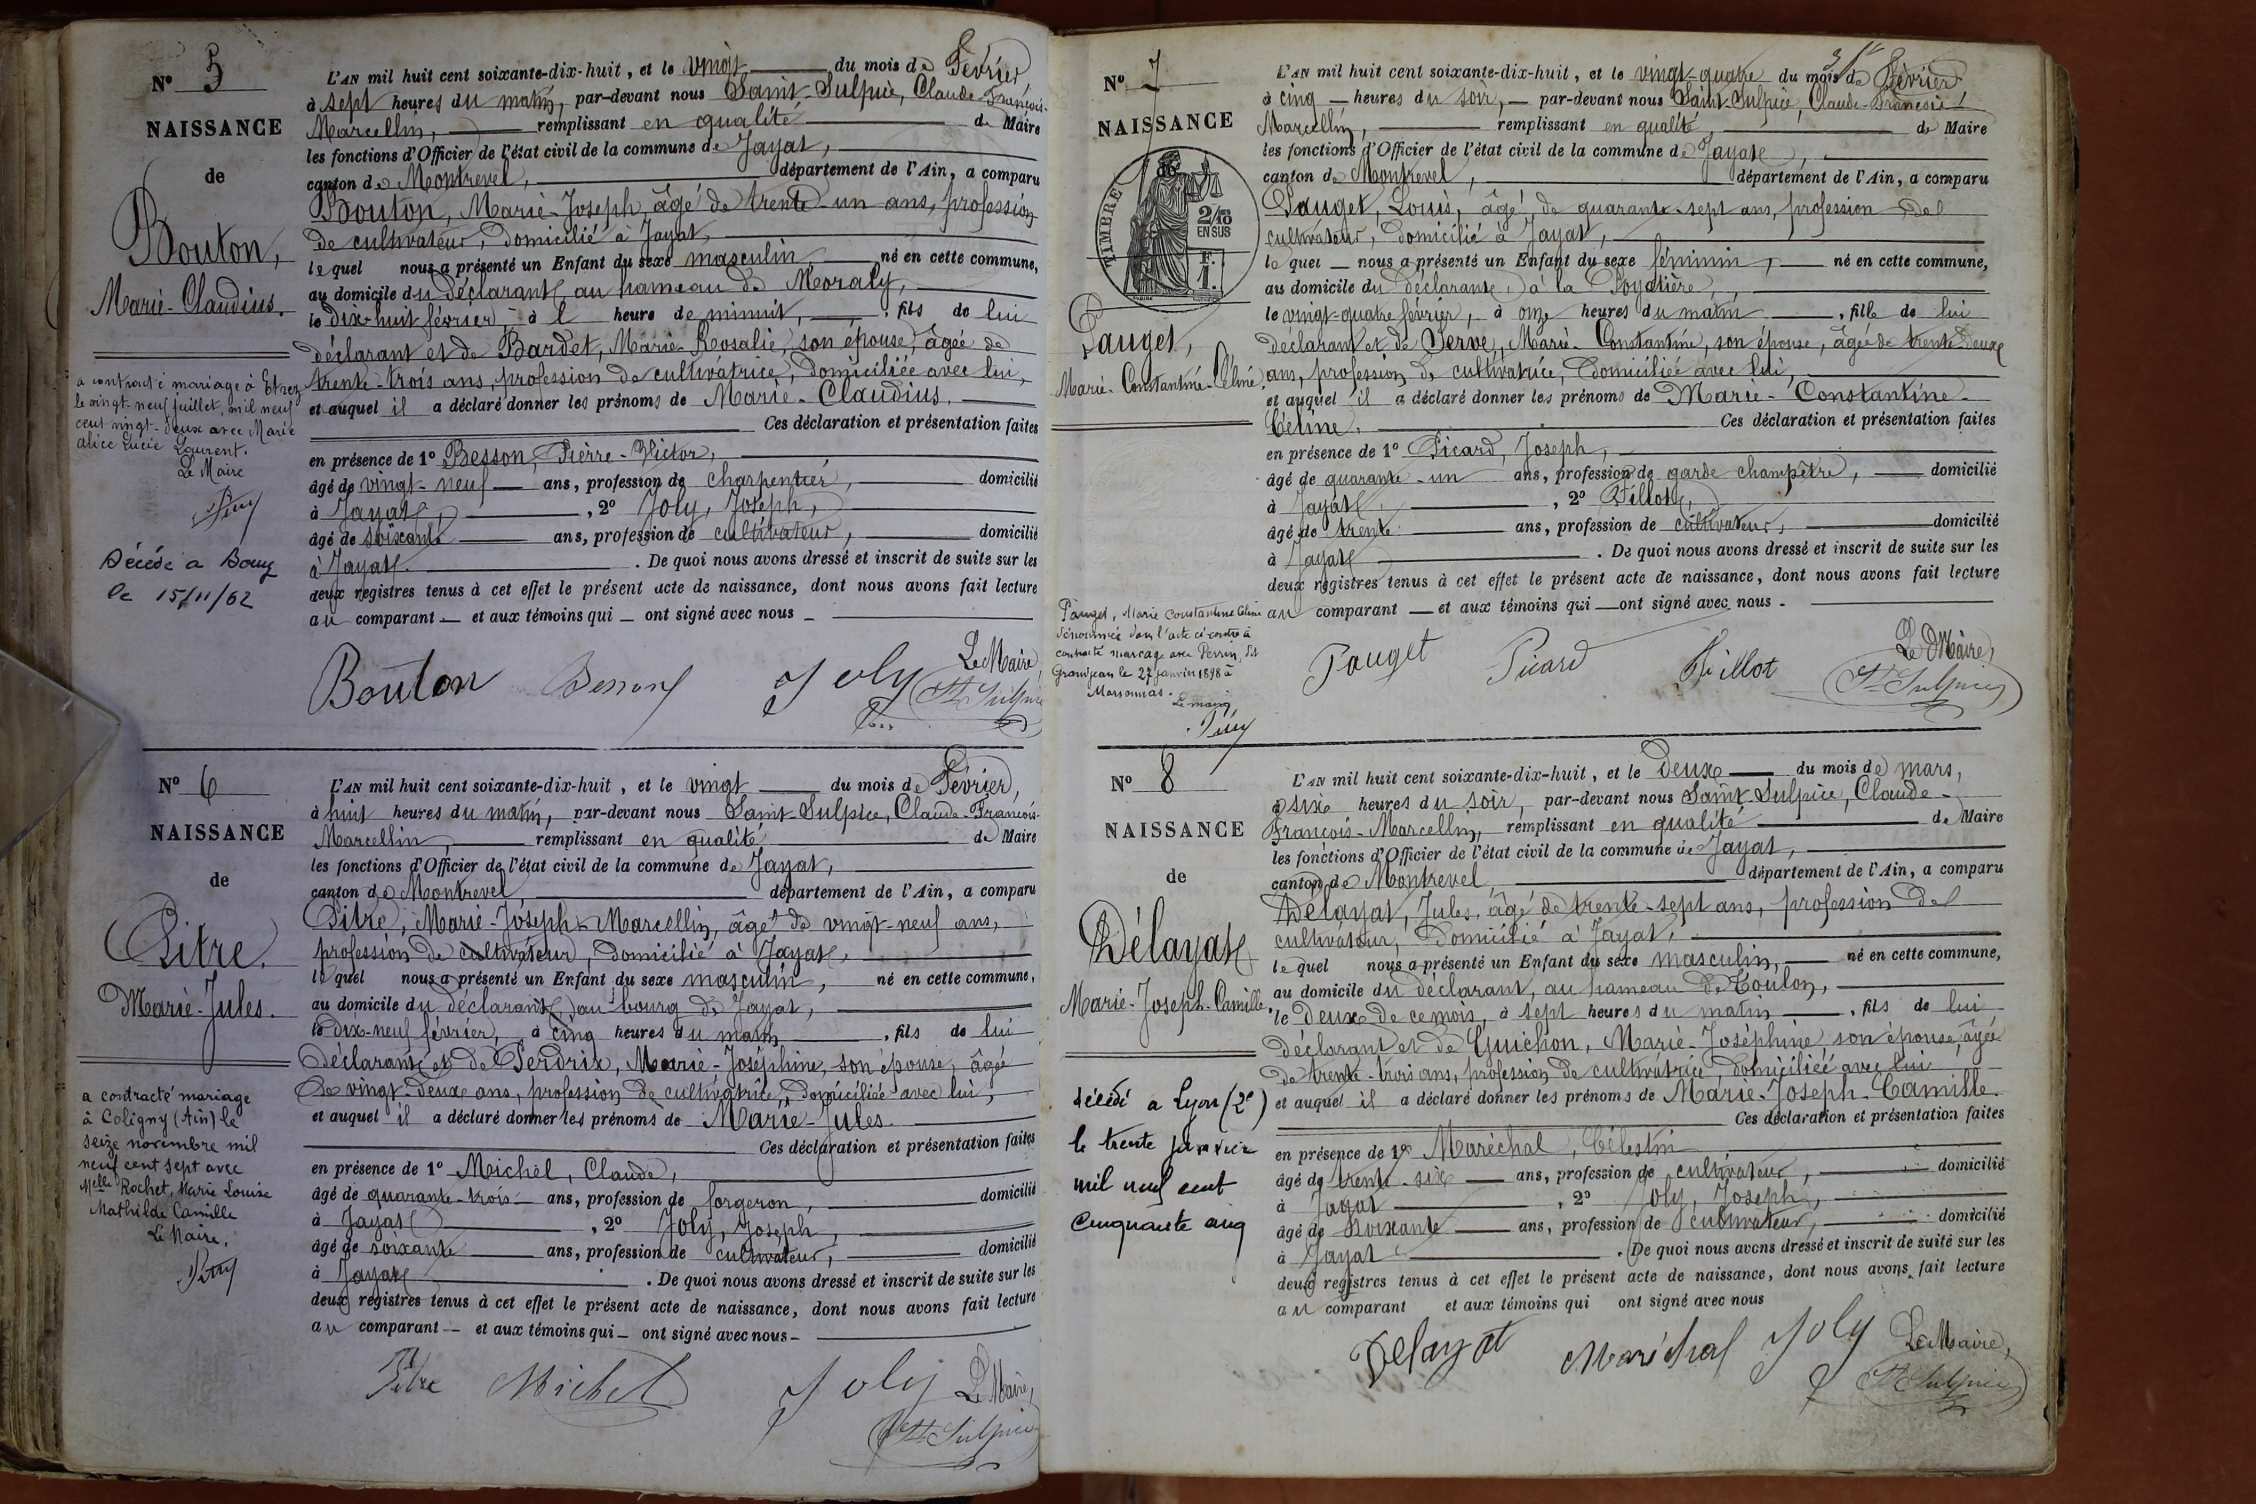 N° 5
NAISSANCE
de
Bouton,
Marie-Claudius.
a contracté mariage à Etrez
le vingt-neuf juillet, mil neuf
cent vingt-deux avec Marie
Alice Lucie Laurent.
Le Maire
Décédé a Bourg
le 15/11/62
L'AN mil huit cent soixante-dix-huit, et le vingt du mois de Février,
à sept heures du matin, par-devant nous Saint-Sulpice, Claude-François-
Marcellin, remplissant en qualité de Maire
les fonctions d'Officier de l'état civil de la commune de Jayat,
canton de Montrevel, département de l'Ain, a comparu
Bouton, Marie-Joseph, âgé de trente-un ans, profession
de cultivateur, domicilié à Jayat,
lequel nous a présenté un Enfant du sexe masculin, né en cette commune,
au domicile du déclarant, au hameau de Moraly,
le dix-huit février, à l heure de minuit, fils de lui
déclarant et de Bardet, Marie-Rosalie, son épouse, âgée de
trente-trois ans, profession de cultivatrice, domiciliée avec lui,
et auquel il a déclaré donner les prénoms de Marie-Claudius.
Ces déclaration et présentation faites
en présence de 1° Besson, Pierre-Victor,
âgé de vingt-neuf ans, profession de charpentier, domicilié
à Jayat, , 2° Joly, Joseph,
âgé de soixante ans, profession de cultivateur, domicilié
à Jayat. . De quoi nous avons dressé et inscrit de suite sur les
deux registres tenus à cet effet le présent acte de naissance, dont nous avons fait lecture
au comparant — et aux témoins qui — ont signé avec nous —
Le Maire,
Bouton Besson Joly St Sulpice
N° 6
NAISSANCE
de
Pitre,
Marie-Jules.
a contracté mariage
à Coligny (Ain) le
seize novembre mil
neuf cent sept avec
Melle Rochet, Marie Louise
Mathilde Camille
Le Maire.
L'AN mil huit cent soixante-dix-huit, et le vingt du mois de Février,
à huit heures du matin, par-devant nous Saint-Sulpice, Claude-François-
Marcellin, remplissant en qualité de Maire
les fonctions d'Officier de l'état civil de la commune de Jayat,
canton de Montrevel, département de l'Ain, a comparu
Pitre, Marie-Joseph-Marcellin, âgé de vingt-neuf ans,
profession de cultivateur, domicilié à Jayat,
lequel nous a présenté un Enfant du sexe masculin, né en cette commune,
au domicile du déclarant, au bourg de Jayat,
le dix-neuf février, à cinq heures du matin, , fils de lui
déclarant et de Perdrix, Marie-Joséphine, son épouse, âgée
de vingt-deux ans, profession de cultivatrice, domiciliée avec lui,
et auquel il a déclaré donner les prénoms de Marie-Jules.
Ces déclaration et présentation faites
en présence de 1° Michel, Claude,
âgé de quarante-trois ans, profession de forgeron, domicilié
à Jayat , 2° Joly, Joseph,
âgé de soixante ans, profession de cultivateur, domicilié
à Jayat . De quoi nous avons dressé et inscrit de suite sur les
deux registres tenus à cet effet le présent acte de naissance, dont nous avons fait lecture
au comparant — et aux témoins qui — ont signé avec nous —
Pitre Michel Joly Le Maire,
St Sulpice
N° 7
NAISSANCE
TIMBRE
2/10
EN SUS
F.
1.
Pauget,
Marie-Constantine-Céline.
Pauget, Marie Constantine Céline
dénommée dans l'acte ci-contre a
contracté mariage avec Perrin, dit
Grandjean le 27 janvier 1898 à
Marsonnas.
Le maire,
L'AN mil huit cent soixante-dix-huit, et le vingt-quatre du mois de Février
à cinq — heures du soir, — par-devant nous Saint-Sulpice, Claude-François-
Marcellin, remplissant en qualité, de Maire
les fonctions d'Officier de l'état civil de la commune de Jayat,
canton de Montrevel, département de l'Ain, a comparu
Pauget, Louis, âgé de quarante-sept ans, profession de
cultivateur, domicilié à Jayat,
lequel — nous a présenté un Enfant du sexe féminin, né en cette commune,
au domicile du déclarant, à la
le vingt-quatre février, à onze heures du matin , fille de lui
déclarant et de Serve, Marie-Constantine, son épouse, âgée de trente-deux
ans, profession de cultivatrice, domiciliée avec lui,
et auquel il a déclaré donner les prénoms de Marie-Constantine-
Céline. Ces déclaration et présentation faites
en présence de 1° Picard, Joseph,
âgé de quarante-un ans, profession de garde champêtre, domicilié
à Jayat, , 2° Fillot,
âgé de trente ans, profession de cultivateur, domicilié
à Jayat . De quoi nous avons dressé et inscrit de suite sur les
deux registres tenus à cet effet le présent acte de naissance, dont nous avons fait lecture
au comparant — et aux témoins qui — ont signé avec nous —
Le Maire,
Pauget Picard Fillot St Sulpice
N° 8
NAISSANCE
de
Délayat
Marie-Joseph-Camille.
décédé a Lyon (2e)
le trente janvier
mil neuf cent
cinquante cinq
L'AN mil huit cent soixante-dix-huit, et le deux du mois de mars,
à six heures du soir, par-devant nous Saint-Sulpice, Claude-
François-Marcellin, remplissant en qualité de Maire
les fonctions d'Officier de l'état civil de la commune de Jayat,
canton de Montrevel, département de l'Ain, a comparu
Délayat, Jules, âgé de trente-sept ans, profession de
cultivateur, domicilié à Jayat,
lequel nous a présenté un Enfant du sexe masculin, né en cette commune,
au domicile du déclarant, au hameau de Toulon,
le deux de ce mois, à sept heures du matin , fils de lui
déclarant et de Guichon, Marie-Joséphine, son épouse, âgée
de trente-trois ans, profession de cultivatrice, domiciliée avec lui
et auquel il a déclaré donner les prénoms de Marie-Joseph-Camille.
Ces déclaration et présentation faites
en présence de 1° Maréchal, Célestin
âgé de trente-six ans, profession de cultivateur, domicilié
à Jayat , 2° Joly, Joseph,
âgé de soixante ans, profession de cultivateur, domicilié
à Jayat . De quoi nous avons dressé et inscrit de suite sur les
deux registres tenus à cet effet le présent acte de naissance, dont nous avons fait lecture
au comparant et aux témoins qui ont signé avec nous
Delayat Maréchal Joly Le Maire,
St Sulpice